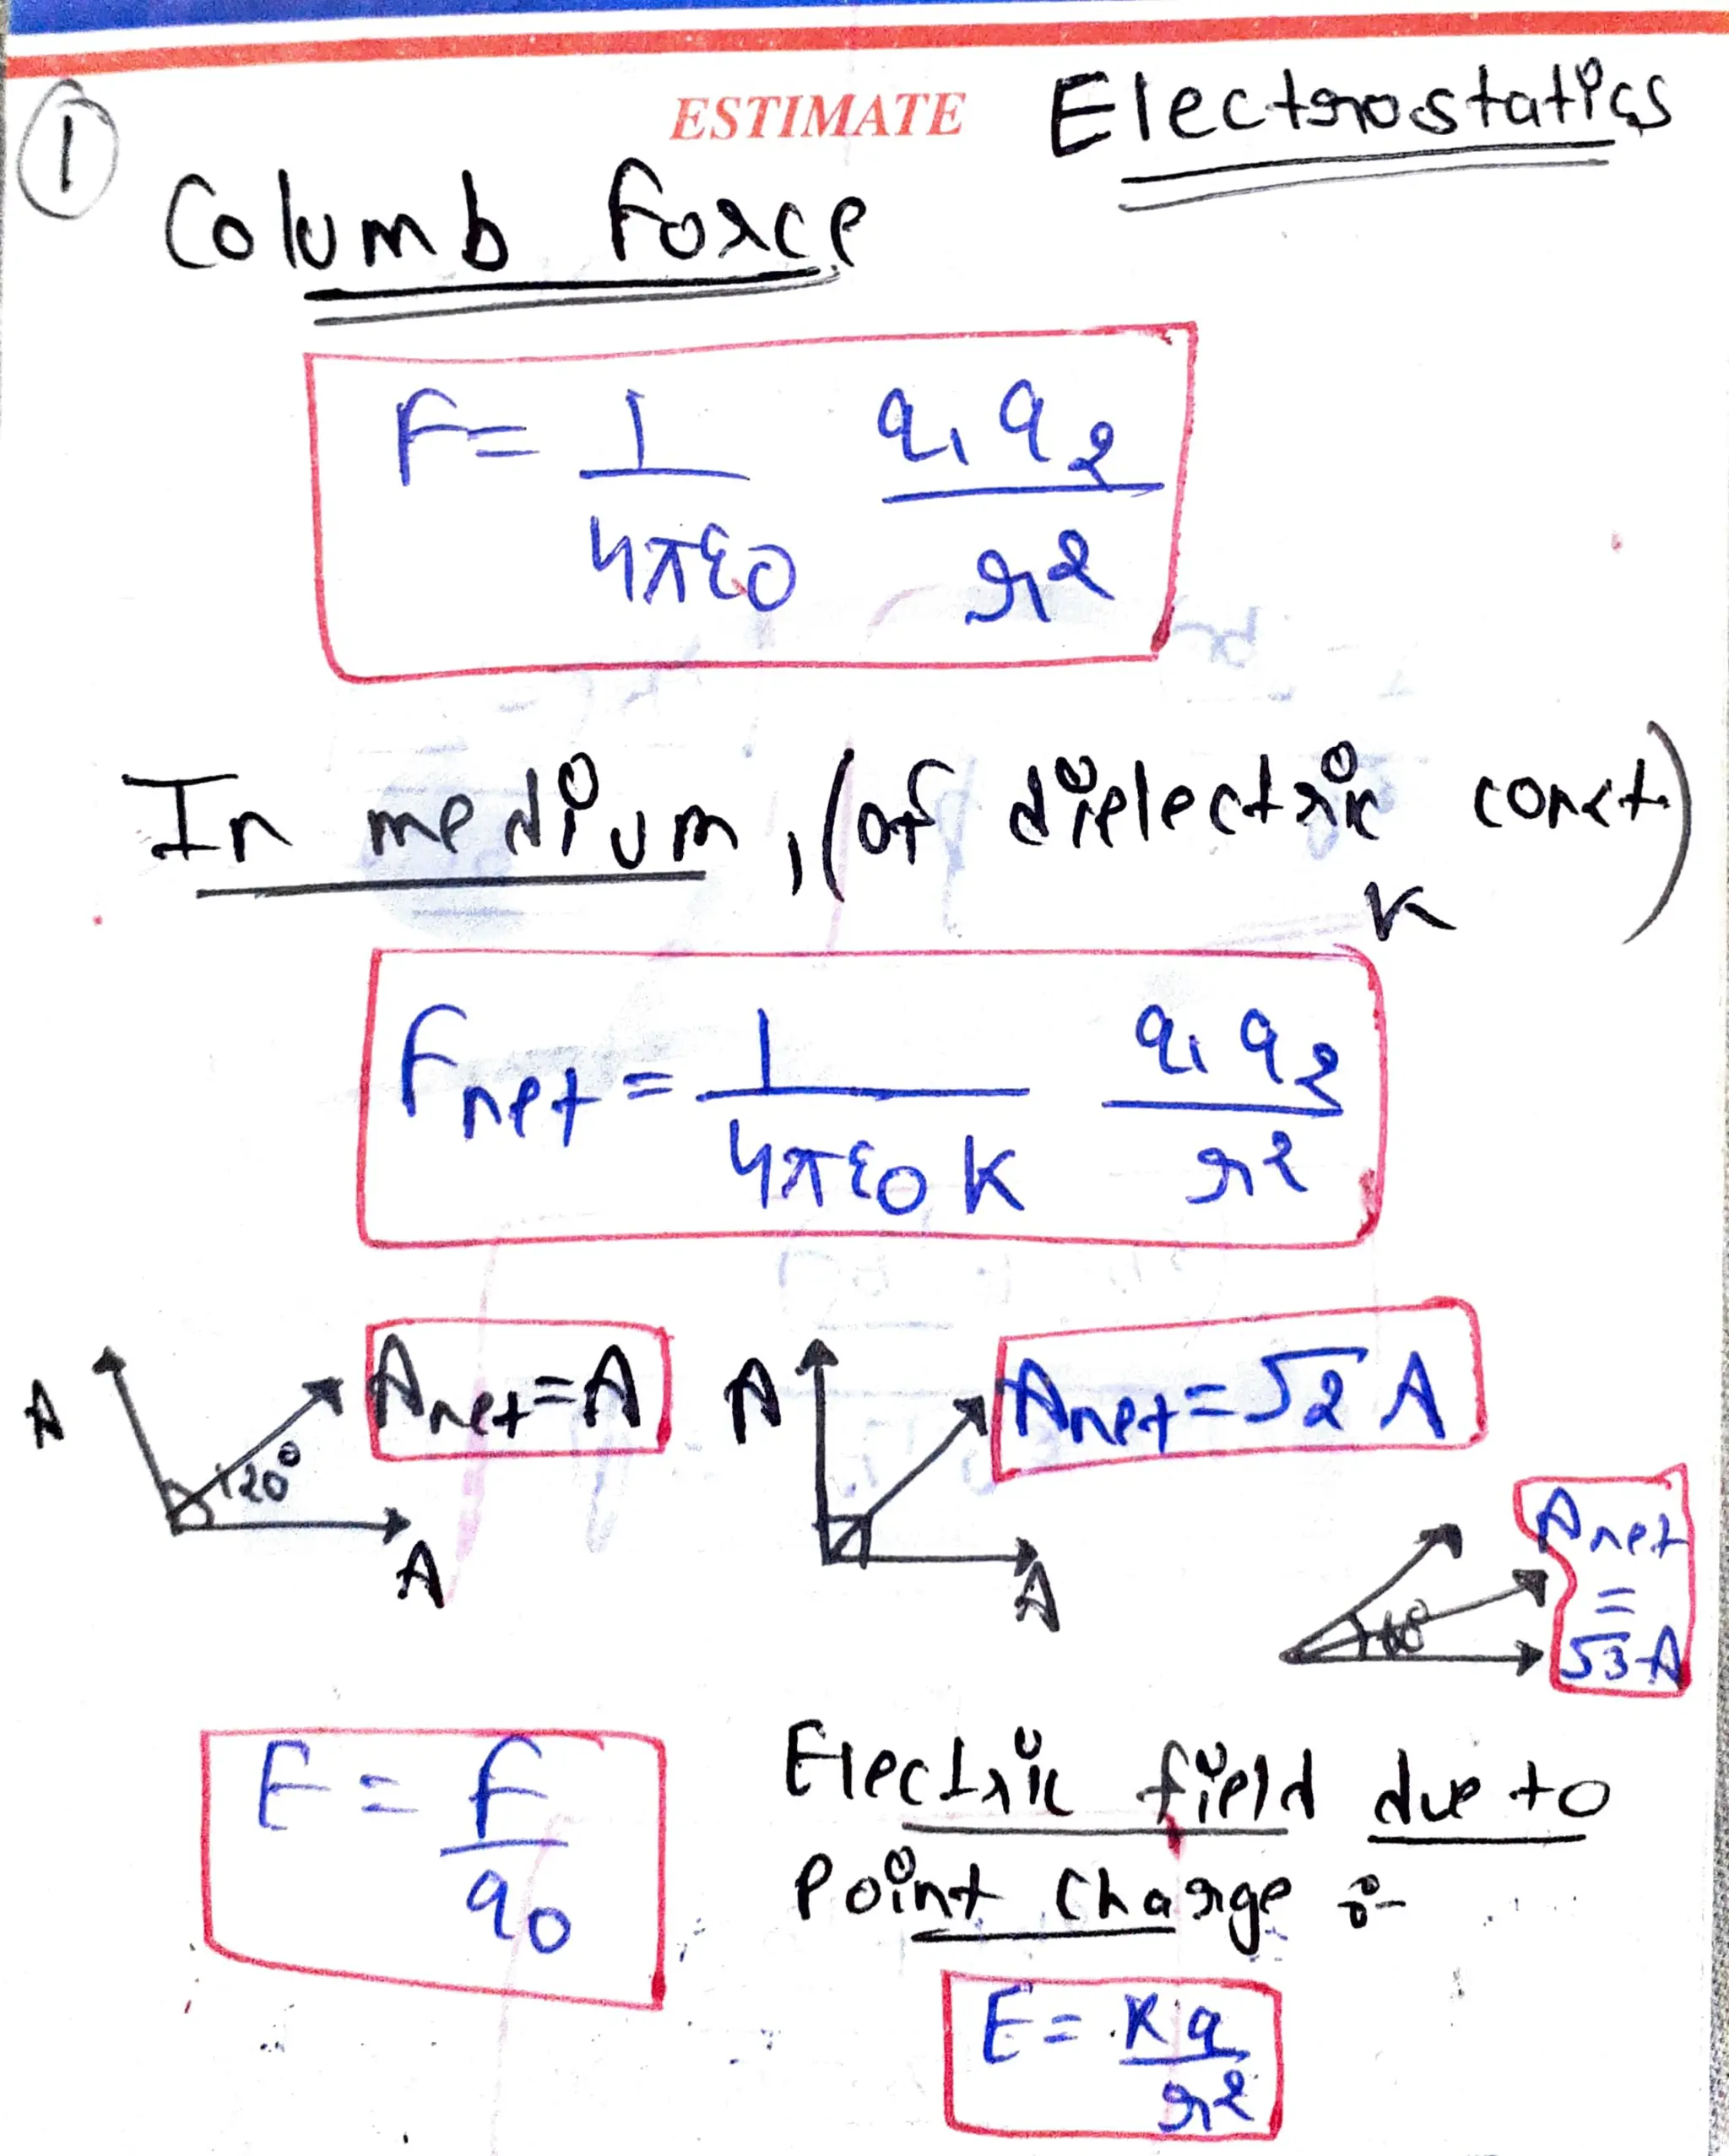 ① ESTIMATE Electrostatics
Columb Force
F = 1/4πε0 q1 q2/r²
In medium, (of dielectric const.)
K
Fnet = 1/4πε0 K q1 q2/r²
A 120° Anet = A A Anet = √2 A
A A 60° Anet = √3 A
E = F/q0
Electric field due to
Point Charge :-
E = Kq/r²